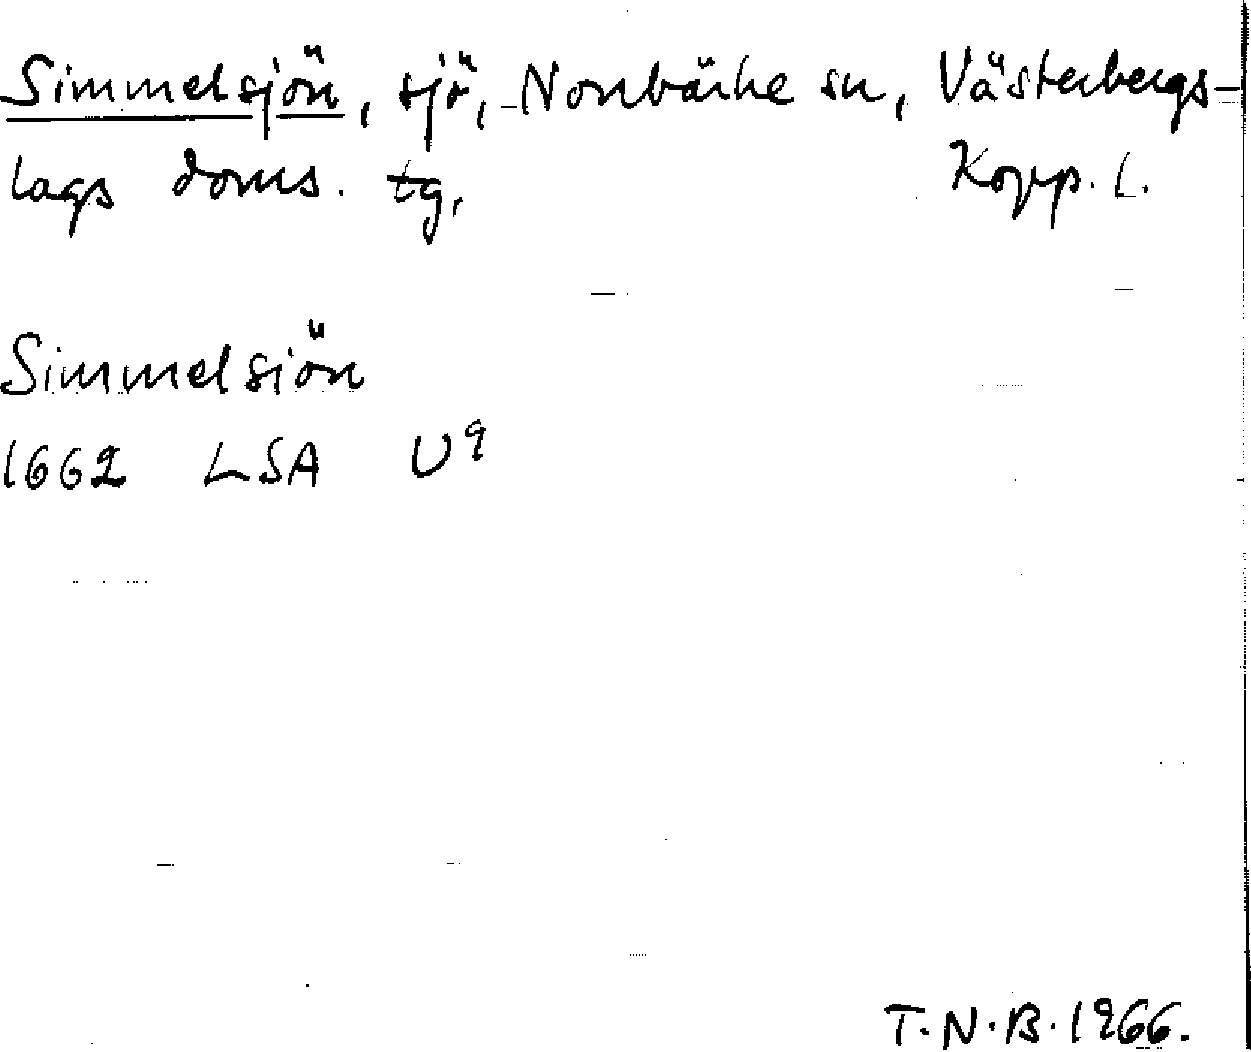 Simmelsjön, sjö, Norrbärke sn, Västerbergs-
lags doms. tg,  Kopp. l.
Simmelsiön
1662 LSA U9
T.N.B. 1966.